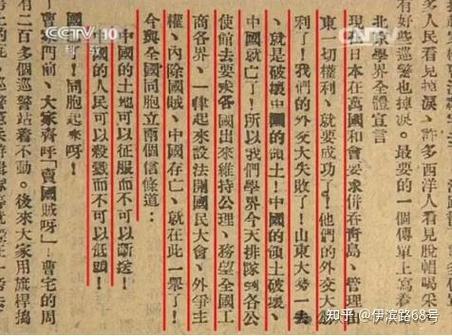 CCTV 10
科教
CNTV
多人看見掉淚、許多西洋人看見脫帽喝采
有好些巡警也掉淚。最要的一個傳單上寫着
北京學界全體宣言
現在日本在萬國和會要求併吞青島、管理山
東一切權利、就要成功了！他們的外交大勝
利了！我們的外交大失敗了！山東大勢一去
、就是破壞中國的領土！中國的領土破壞、
中國就亡了！所以我們學界今天排隊到各公
使館去要求各國出來維持公理、務望全國工
商各界、一律起來設法開國民大會、外爭主
權、內除國賊、中國存亡、就在此一舉了！
今與全國同胞立兩個信條道：
中國的土地可以征服而不可以斷送！
中國的人民可以殺戮而不可以低頭！
國亡了！同胞起來呀！
曹宅門前、大家齊呼「賣國賊呀」曹宅的周
有二百多個巡警站着不動。後來大家用旗桿搗
知乎 @伊滨路68号